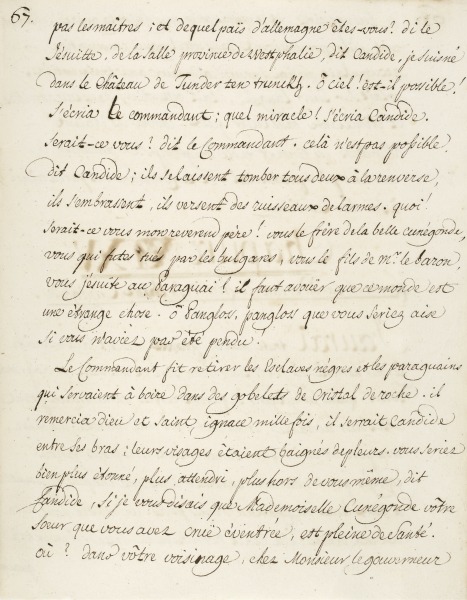 67.
pas les maîtres; et de quel païs d'allemagne êtes-vous? dit le
Jésuitte, de la salle province de Westphalie, dit Candide, je suis né
dans le Château de Tunder ten trunckh. ô ciel! est-il possible!
s'écria le commandant; quel miracle! s'écria Candide.
serait-ce vous? dit le Commandant. celà n'est pas possible,
dit Candide; ils se laissent tomber tous deux à la renverse,
ils s'embrassent, ils versent des ruisseaux de larmes. quoi!
serait-ce vous mon reverend père! vous le frère de la belle cunégonde,
vous qui futes tué par les bulgares, vous le fils de Mr. le baron,
vous jésuite au Paraguai! il faut avoüer que ce monde est
une étrange chose. ô Panglos, panglos que vous seriez aise
si vous n'aviez pas été pendu.
Le Commandant fit retirer les Esclaves nègres et les paraguains
qui servaient à boire dans des gobelets de Cristal de roche. il
remercia dieu et saint ignace mille fois, il serrait Candide
entre ses bras; leurs visages étaient baignés de pleurs. vous seriez
bien plus étonné, plus attendri, plus hors de vous même, dit
Candide, si je vous disais que Mademoiselle Cunégonde vôtre
soeur que vous avez cruë éventrée, est pleine de santé.
où? dans vôtre voisinage, chez Monsieur le gouverneur